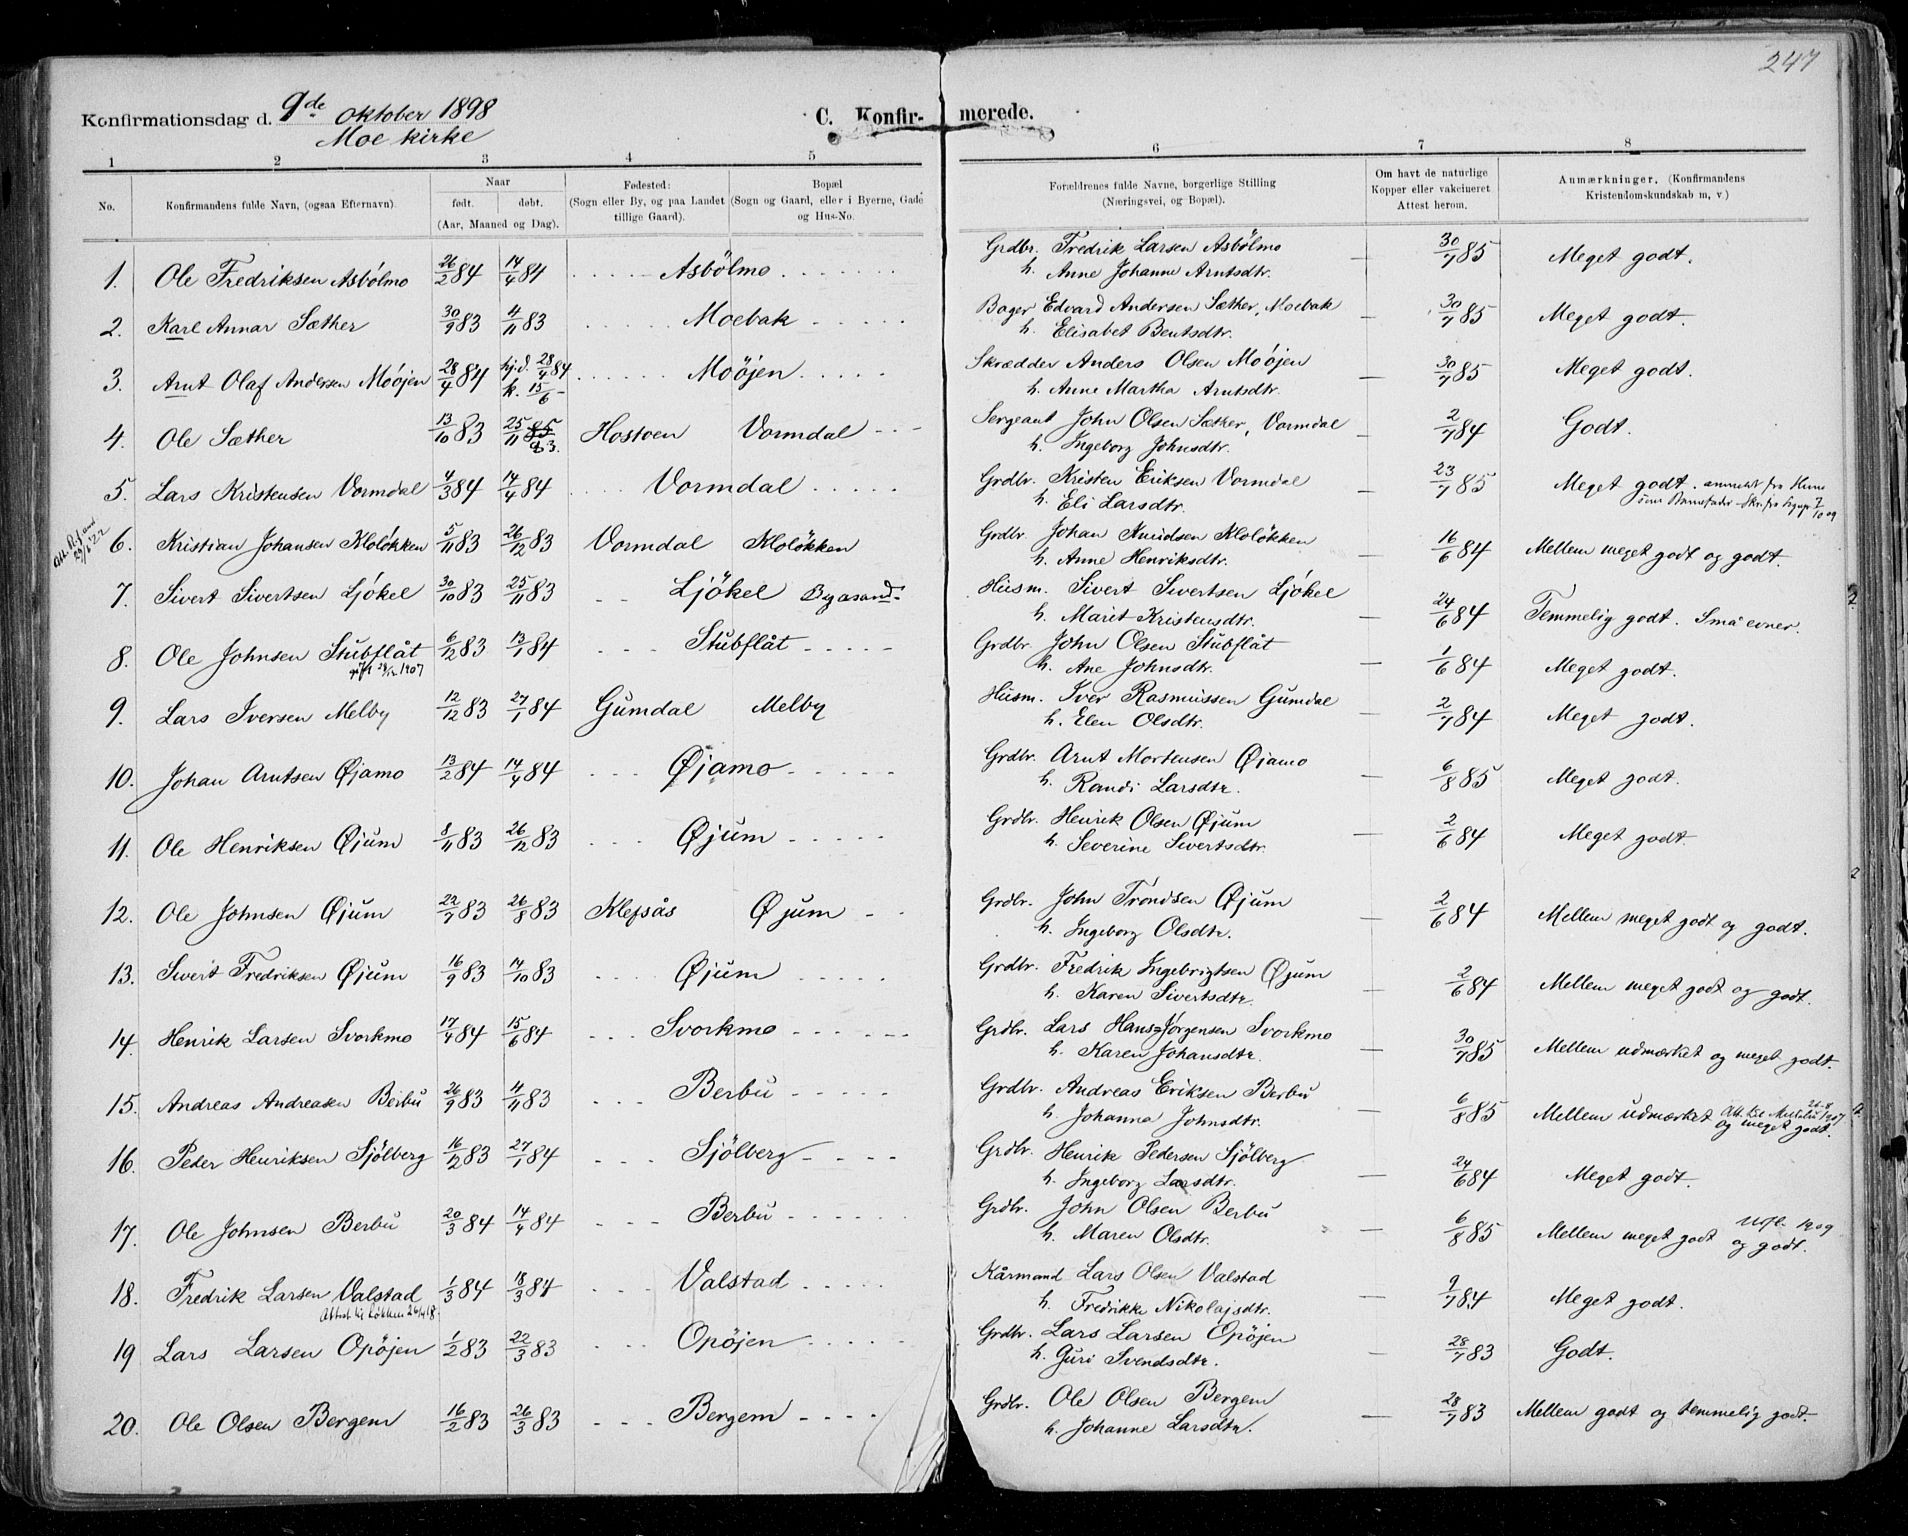 247
Konfirmationsdag d. 9de oktober 1898
Moe kirke
C. Konfirmerede.
1 2 3 4 5 6 7 8
No. Konfirmandens fulde Navn, (ogsaa Efternavn). Naar født. døbt. (Aar, Maaned og Dag). Fødested: (Sogn eller By, og paa Landet tillige Gaard). Bopæl (Sogn og Gaard, eller i Byerne, Gade og Hus-No. Forældrenes fulde Navne, borgerlige Stilling (Næringsvei, og Bopæl). Om havt de naturlige Kopper eller vakcineret. Attest herom. Anmærkninger. (Konfirmandens Kristendomskundskab m, v.)
1. Ole Fredriksen Asbölmo 26/2 84 14/4 84 Asbölmo Grdbr. Fredrik Larsen Asbölmo — 30/7 85 Meget godt.
h. Anne Johanne Arntsdtr.
2. Karl Annar Sæther 30/9 83 4/11 83 Moebak Bager Edvard Andersen Sæther, Moebak — 30/7 85 Meget godt.
h. Elisabet Bentsdtr.
3. Arnt Olaf Andersen Moöjen 28/4 84 hj.d. 28/4 84 Moöjen Skrædder Anders Olsen Moöjen — 30/7 85 Meget godt.
k. 15/6 – h. Anne Martha Arntsdtr.
4. Ole Sæther 13/10 83 25/11 85 83. Hostoen Vormdal Sergeant John Olsen Sæther, Vormdal — 2/7 84 Godt.
h. Ingeborg Johnsdtr.
5. Lars Kristensen Vormdal 4/3 84 14/4 84 Vormdal Grdbr. Kristen Eriksen Vormdal — 23/7 85 Meget godt.
h. Eli Larsdtr.
29/6 22
6. Kristian Johansen Kloløkken 5/11 83 26/12 83 Vormdal Kloløkken Grdbr. Johan Knudsen Kloløkken — 16/6 84 Mellem meget godt og godt.
h. Anne Henriksdtr.
7. Sivert Sivertsen Ljökel 30/10 83 25/11 83 Ljökel Byasand Husm. Sivert Sivertsen Ljökel — 24/6 84 Temmelig godt. Små evner.
h. Marit Kristensdtr.
8. Ole Johnsen Stubflåt 6/12 83 13/1 84 Stubflåt Grdbr. John Olsen Stubflåt — 1/6 84 Meget godt.
1907 h. Ane Johnsdtr.
9. Lars Iversen Melby 12/12 83 27/1 84 Gumdal Melby Husm. Iver Rasmussen Gumdal — 2/7 84 Meget godt.
h. Elen Olsdtr.
10. Johan Arntsen Øjamo 13/2 84 14/4 84 Øjamo Grdbr. Arnt Mortensen Øjamo — 6/8 85 Meget godt.
h. Randi Larsdtr.
11. Ole Henriksen Øjum 8/11 83 26/12 83 Øjum Grdbr. Henrik Olsen Øjum — 2/6 84 Meget godt.
h. Severine Sivertsdtr.
12. Ole Johnsen Øjum 22/7 83 26/8 83 Klefsås Øjum Grdbr. John Tröndsen Øjum — 2/6 84 Mellem meget godt og godt.
h. Ingeborg Olsdtr.
13. Sivert Fredriksen Øjum 16/9 83 14/10 83 Øjum Grdbr. Fredrik Ingebrigtsen Øjum — 2/6 84 Mellem meget godt og godt.
h. Karen Sivertsdtr.
14. Henrik Larsen Svorkmo 17/4 84 15/6 84 Svorkmo Grdbr. Lars Hans-Jørgensen Svorkmo — 30/7 85 Mellem udmærket og meget godt.
h. Karen Johansdtr.
15. Andreas Andreasen Berbu 26/9 83 4/11 83 Berbu Grdbr. Andreas Eriksen Berbu — 6/8 85 Mellem udmærket og meget godt.
h. Johanna Johnsdtr.
16. Peder Henriksen Sjölberg 16/12 83 27/1 84 Sjölberg Grdbr. Henrik Pedersen Sjölberg — 24/6 84 Meget godt.
h. Ingeborg Larsdtr.
17. Ole Johnsen Berbu 20/3 84 14/4 84 Berbu Grdbr. John Olsen Berbu — 6/8 85 Mellem meget godt og godt. 1909
h. Maren Olsdtr.
18. Fredrik Larsen Valstad 1/3 84 18/3 84 Valstad Kårmand Lars Olsen Valstad — 9/7 84 Meget godt.
Attest til Løkken 26/4 18. h. Fredrikke Nikolajsdtr.
19 Lars Larsen Opöjen 1/2 83 22/3 83 Opöjen Grdbr. Lars Larsen Opöjen — 28/7 83 Godt.
h. Guri Svendsdtr.
20. Ole Olsen Bergem 16/2 83 26/3 83 Bergem Grdbr. Ole Olsen Bergem — 28/7 83 Mellem godt og temmelig godt
h. Johanne Larsdtr.